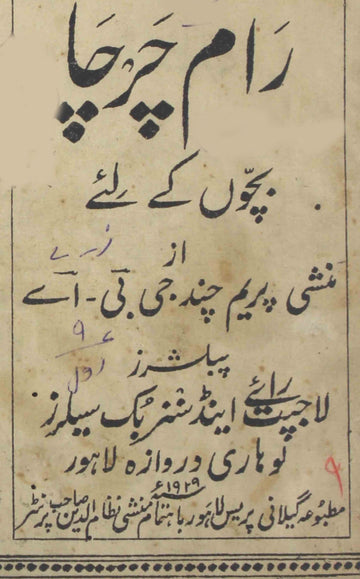 رَام چَرچَا
بچّوں کے لئے
از
منشی پریم چند جی بی-اے
پبلشرز
لاجپت رائے اینڈ سنز بک سیلرز
لوہاری دروازہ لاہور
۱۹۲۹ء
مطبوعہ گیلانی پریس لاہور باہتمام منشی نظام الدین صاحب پرنٹر